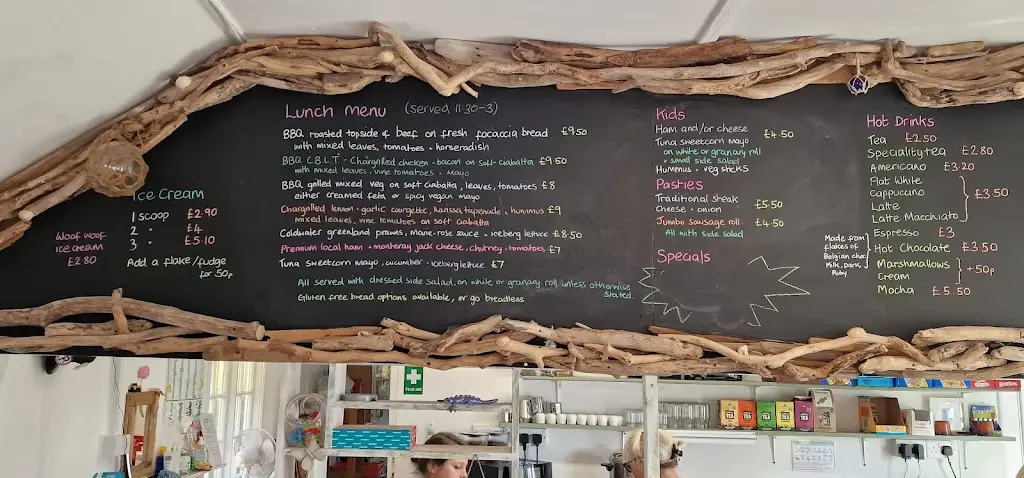 Ice Cream
1 scoop £2.90
2 " £4
3 " £5.10
Add a flake/fudge
for 50p
Woof woof
ice cream
£2.80
Lunch menu (served 11:30-3)
BBQ roasted topside of beef on fresh focaccia bread £9.50
with mixed leaves, tomatoes + horseradish
BBQ C.B.L.T - Chargrilled chicken + bacon on soft ciabatta £9.50
with mixed leaves, vine tomatoes + mayo
BBQ grilled mixed veg on soft ciabatta, leaves, tomatoes £8
either creamed feta or spicy vegan mayo
Chargrilled lemon + garlic courgette, harissa tapenade + hummus £9
mixed leaves, vine tomatoes on soft ciabatta
Coldwater greenland prawns, marie-rose sauce + iceberg lettuce £8.50
Premium local ham + monteray jack cheese, chutney + tomatoes £7
Tuna sweetcorn mayo, cucumber + iceberg lettuce £7
All served with dressed side salad, on white or granary roll unless otherwise
stated.
Gluten free bread options available, or go breadless
Kids
Ham and/or cheese £4.50
Tuna sweetcorn mayo
on white or granary roll
+ small side salad
Hummus + veg sticks
Pasties
Traditional steak £5.50
Cheese + onion
Jumbo sausage roll £4.50
All with side salad
Specials
Hot Drinks
Tea £2.50
Speciality tea £2.80
Americano £3.20
Flat White
Cappucino £3.50
Latte
Latte Macchiato
Espresso £3
Hot Chocolate £3.50
Marshmallows +50p
Cream
Mocha £5.50
Made from
flakes of
Belgian choc
Milk, Dark,
Ruby
First aid
TEA
TEA
TEA
TEA